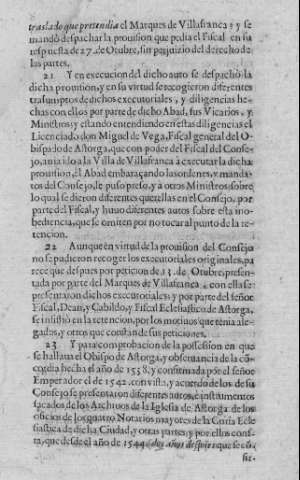 traslado que pretendia el Marques de Villafranca: y se
mandò despachar la prouision que pedia el Fiscal en su
respuesta de 27. de Otubre, sin perjuizio del derecho de
las partes.
21 Y en execucion del dicho auto se despachò la
dicha prouision, y en su virtud se recogieron diferentes
trasumptos de dichos executoriales, y diligencias he-
chas con ellos por parte de dicho Abad, sus Vicarios, y
Ministros: y estando entendiendo en estas diligencias el
Licenciado don Miguel de Vega, Fiscal general del O-
bispado de Astorga, que con poder del Fiscal del Conse-
jo, auia ido a la Villa de Villafranca à executar la dicha
prouision, el Abad embaraçando las ordenes, y manda-
tos del Consejo, le puso preso, y a otros Ministros: sobre
lo qual se dieron diferentes querellas en el Consejo, por
parte del Fiscal, y huuo diferentes autos sobre esta ino-
bediencia, que se omiten por no tocar al punto de la re-
tencion.
22 Aunque en virtud de la prouision del Consejo
no se pudieron recoger los executoriales originales, pa-
rece que despues por peticion de 13. de Otubre, presen-
tada por parte del Marques de Villafranca, con ella se
presentaron dichos executoriales: y por parte del señor
Fiscal, Dean, y Cabildo, y Fiscal Eclesiastico de Astorga,
se insistiò en la retencion, por los motiuos que tenia ale-
gados, y otros que constan de sus peticiones.
23 Y para comprobacion de la possession en que
se hallaua el Obispo de Astorga, y obseruancia de la cõ-
cordia hecha el año de 1538. y confirmada por el señor
Emperador el de 1542. con vista, y acuerdo de los de su
Consejo se presentaron diferentes autos, è instrumentos
sacados de los Archiuos de la Iglesia de Astorga, de los
oficios de los quatro Notarios mayores de la Curia Ecle-
siastica de dicha Ciudad, y otras partes, y por ellos cons-
ta, que desde el año de 1544. dos años despues que se cõ-
fir-